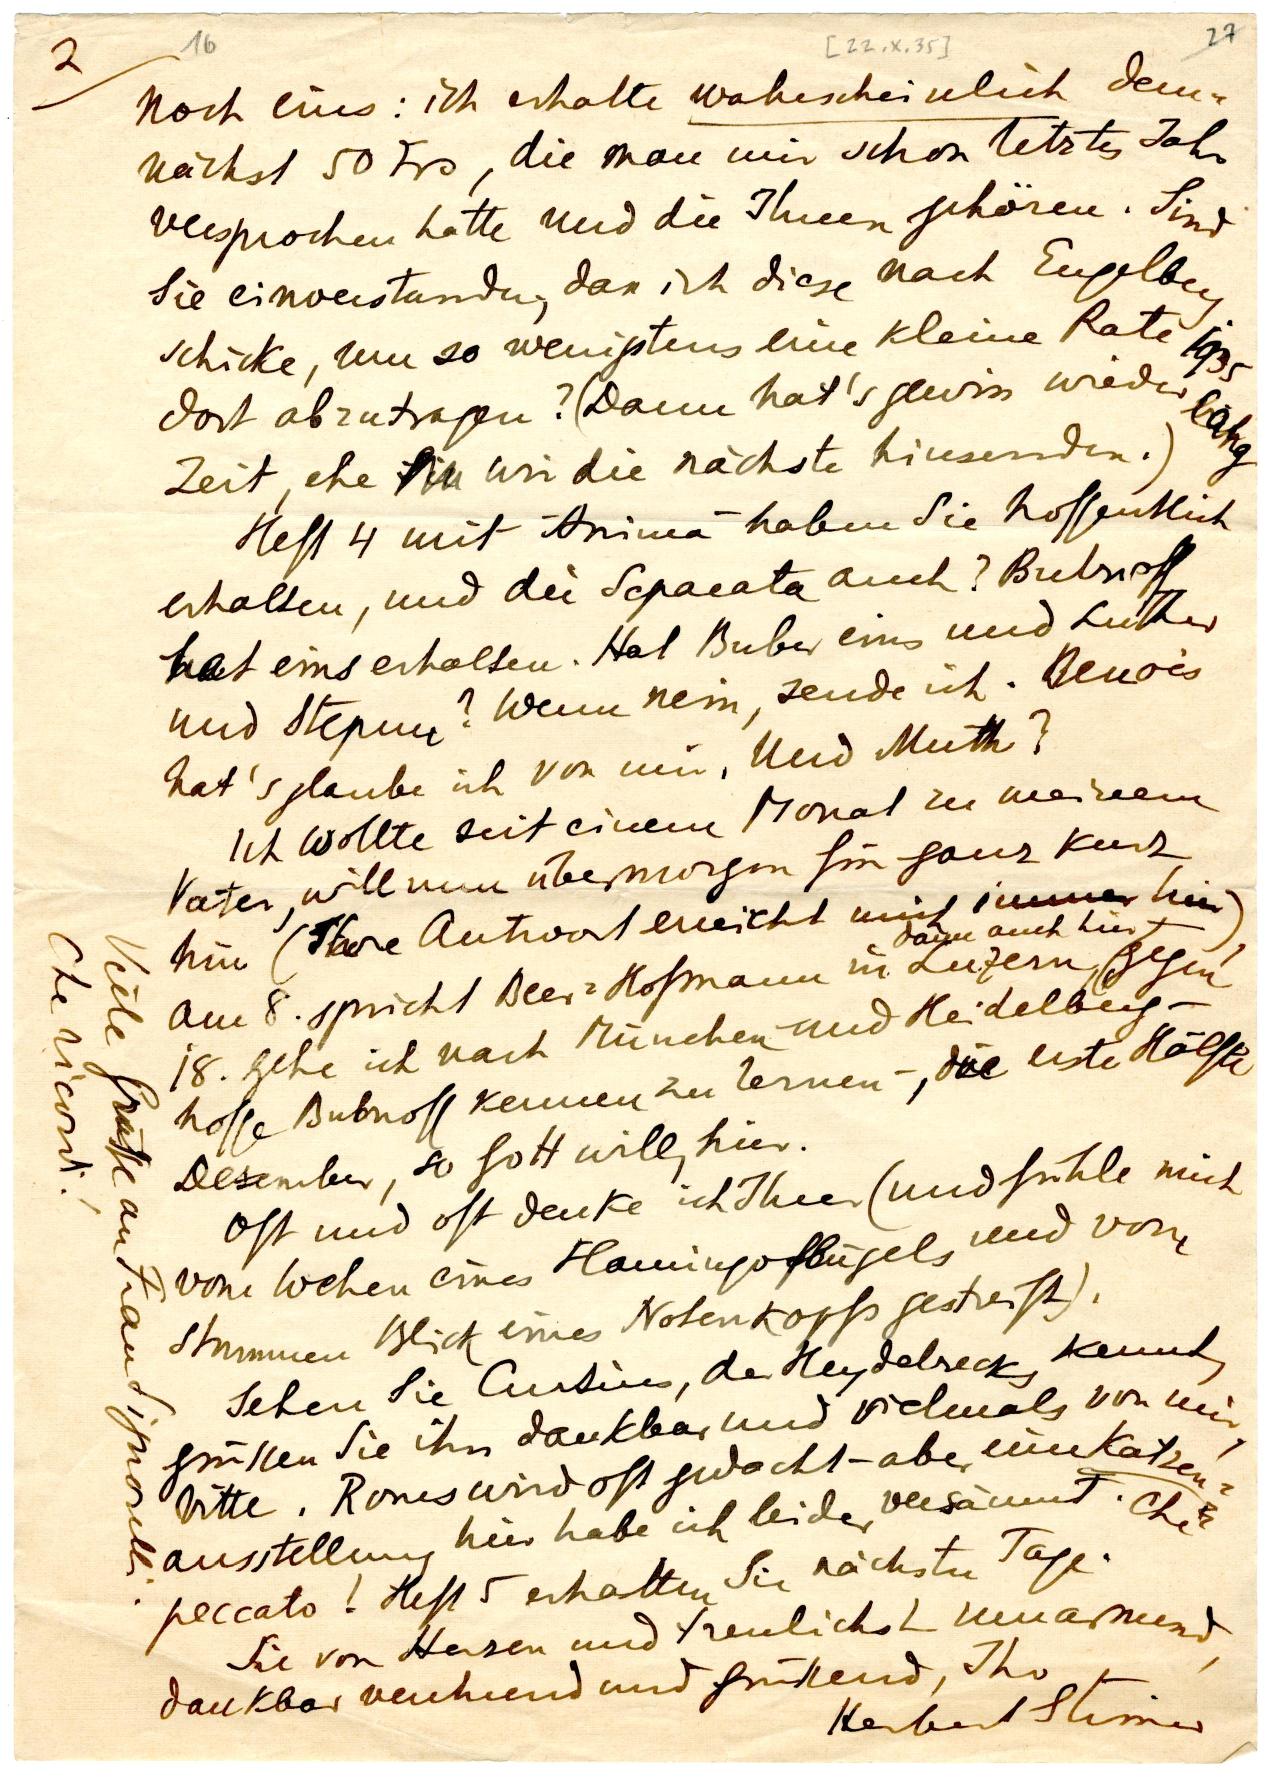 2
16
[22.X.35]
27
Noch eins: ich erhalte wahrscheinlich dem-
nächst 50 Frs, die man mir schon letztes Jahr
versprochen hatte und die Ihnen gehören. Sind
Sie einverstanden, dass ich diese nach Engelberg
schicke, um so wenigstens eine kleine Rate 1935
dort abzutragen? (Dann hat's gewiss wieder lang
Zeit, ehe wir die nächste hinsenden.)
Heft 4 mit Anima haben Sie hoffentlich
erhalten, und die Separata auch? Bubnoff
hat eins erhalten. Hat Buber eins und Luther
und Stepun? Wenn nein, sende ich. Benois
hat's glaube ich von mir. Und Muth?
Ich wollte seit einem Monat zu meinem
Vater, will nun übermorgen für ganz kurz
hin (Ihre Antwort erreicht mich immer hier)
dann auch hier
Am 8. spricht Beer-Hofmann in Luzern, gegen
18. gehe ich nach München und Heidelberg –
hoffe Bubnoff kennen zu lernen –, die erste Hälfte
Dezember, so Gott will, hier.
Oft und oft denke ich Ihrer (und fühle mich
vom Wehen eines Flamingoflügels und vom
stummen Blick eines Notenkopfs gestreift).
Sehen Sie Curtius, der Heydebreck kennt,
grüssen Sie ihn dankbar und vielmals von mir,
bitte. Roms wird oft gedacht – aber eine Katzen-
ausstellung hier habe ich leider versäumt. Che
peccato! Heft 5 erhalten Sie nächster Tage.
Sie von Herzen und treulichst umarmend,
dankbar verehrend und grüssend, Ihr
Herbert Steiner
Viele Grüsse an Frau Signorelli.
Che ricordi!